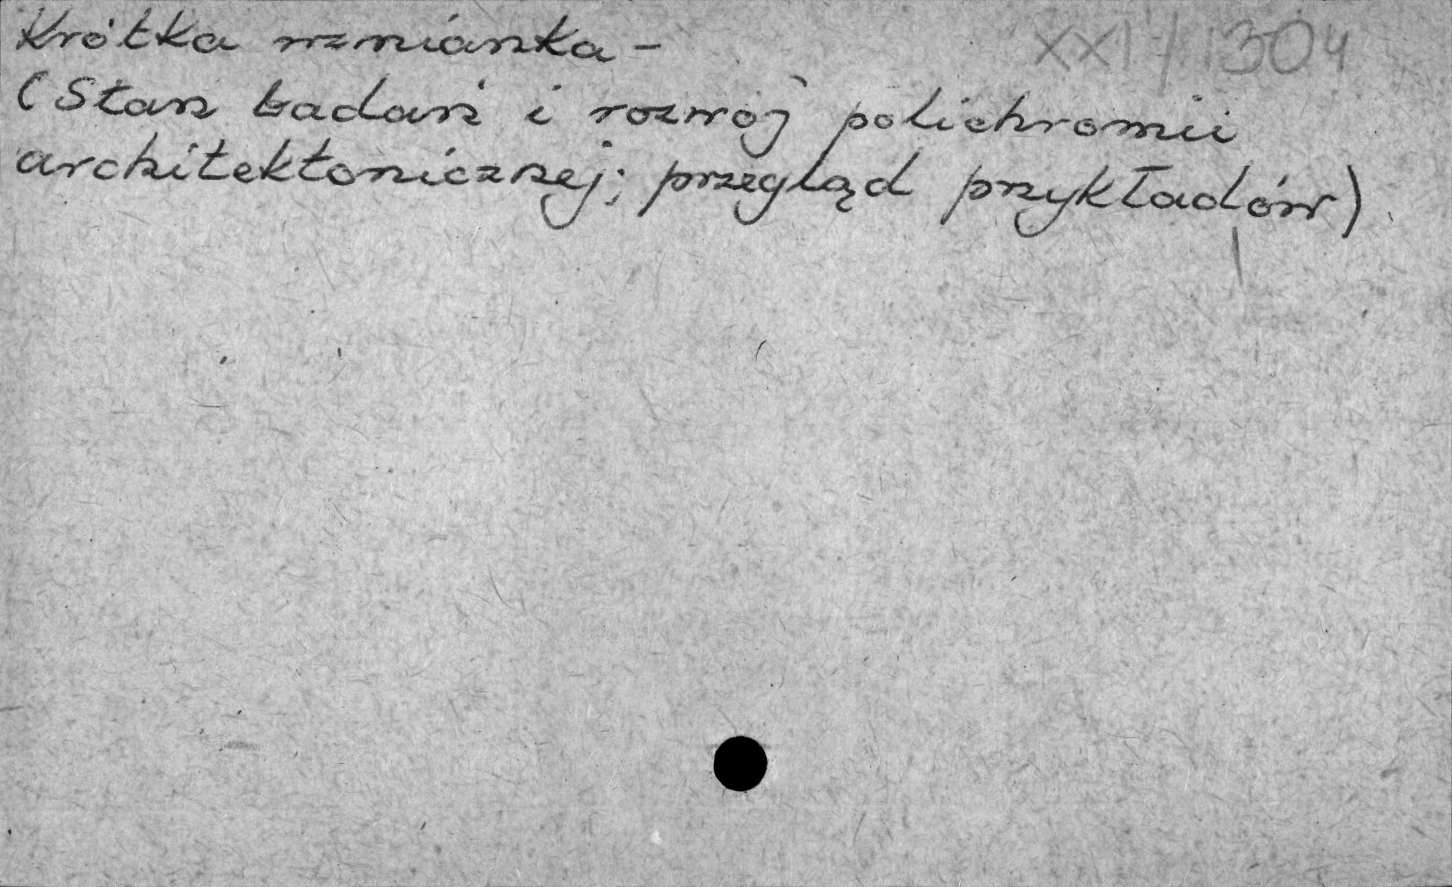 Krótka wzmianka - XXI/1304
(Stan badań i rozwój polichromii
architektonicznej; przegląd przykładów)